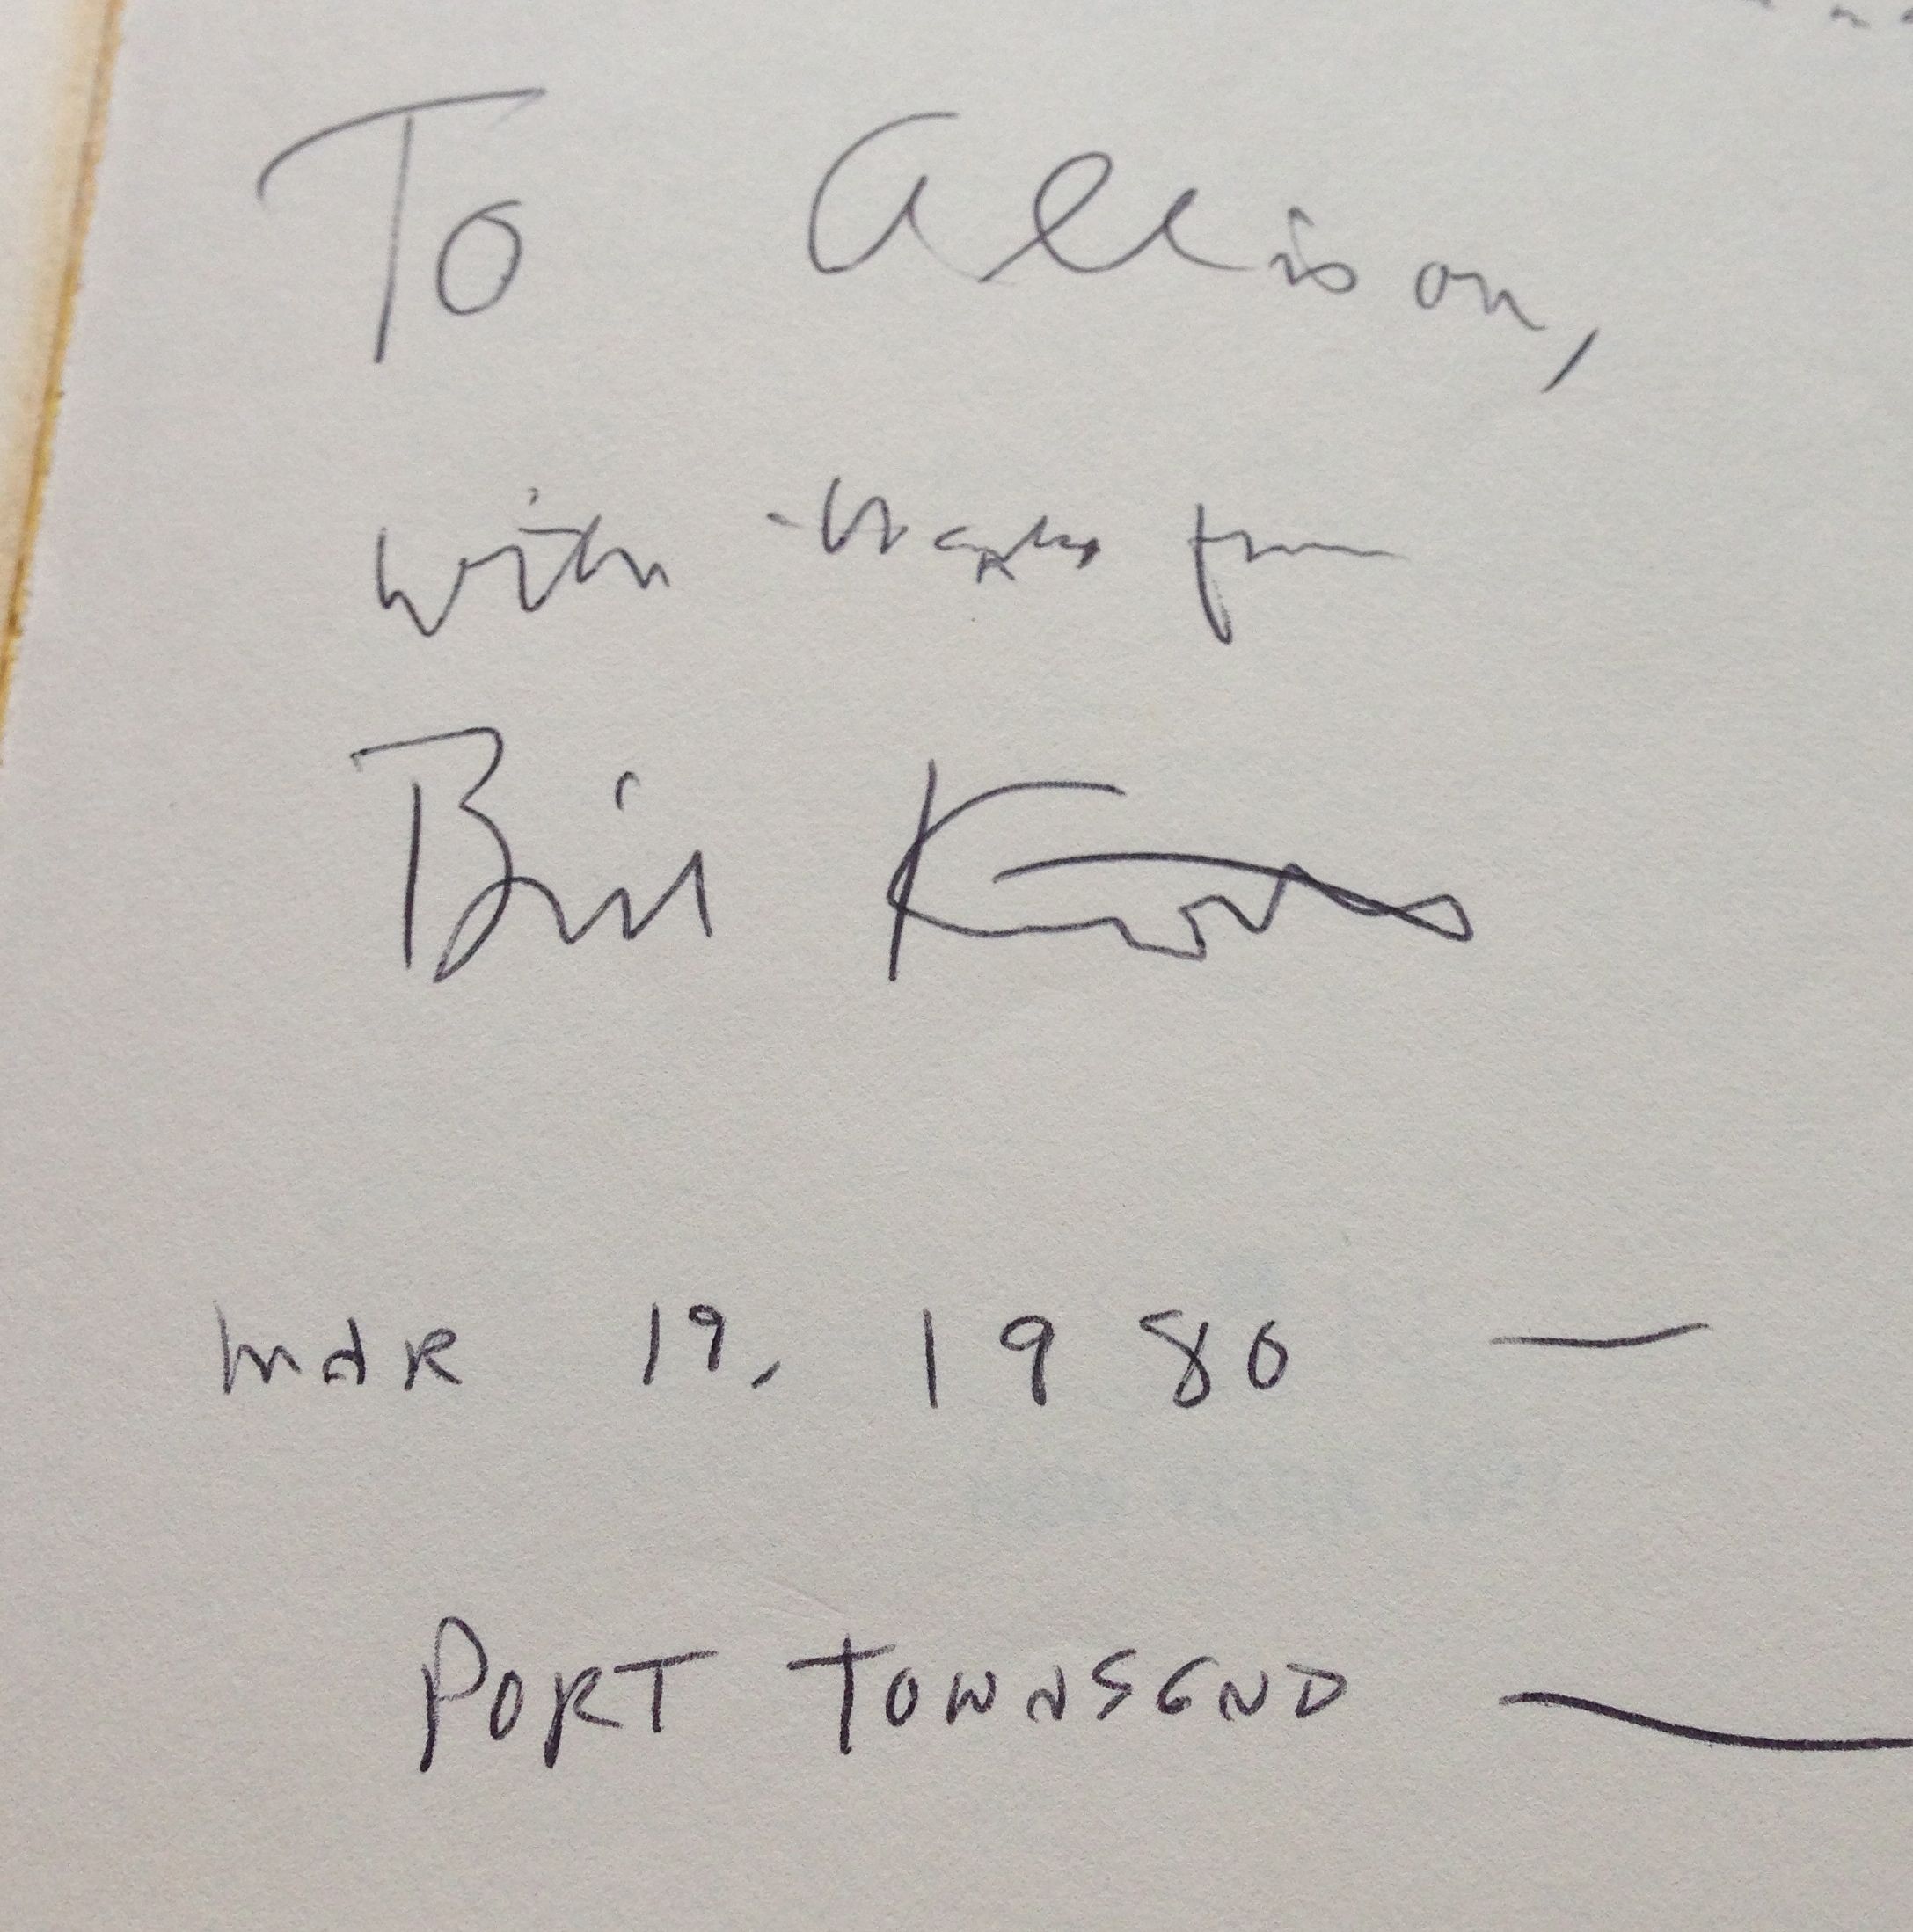 To Allison,
with thanks from
Bill
MAR 19, 1980 —
PORT TOWNSEND —